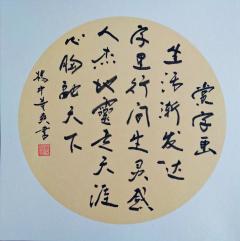 赏字画
生活渐发达
字里行间生灵感
人杰地灵走天涯
心胸融天下